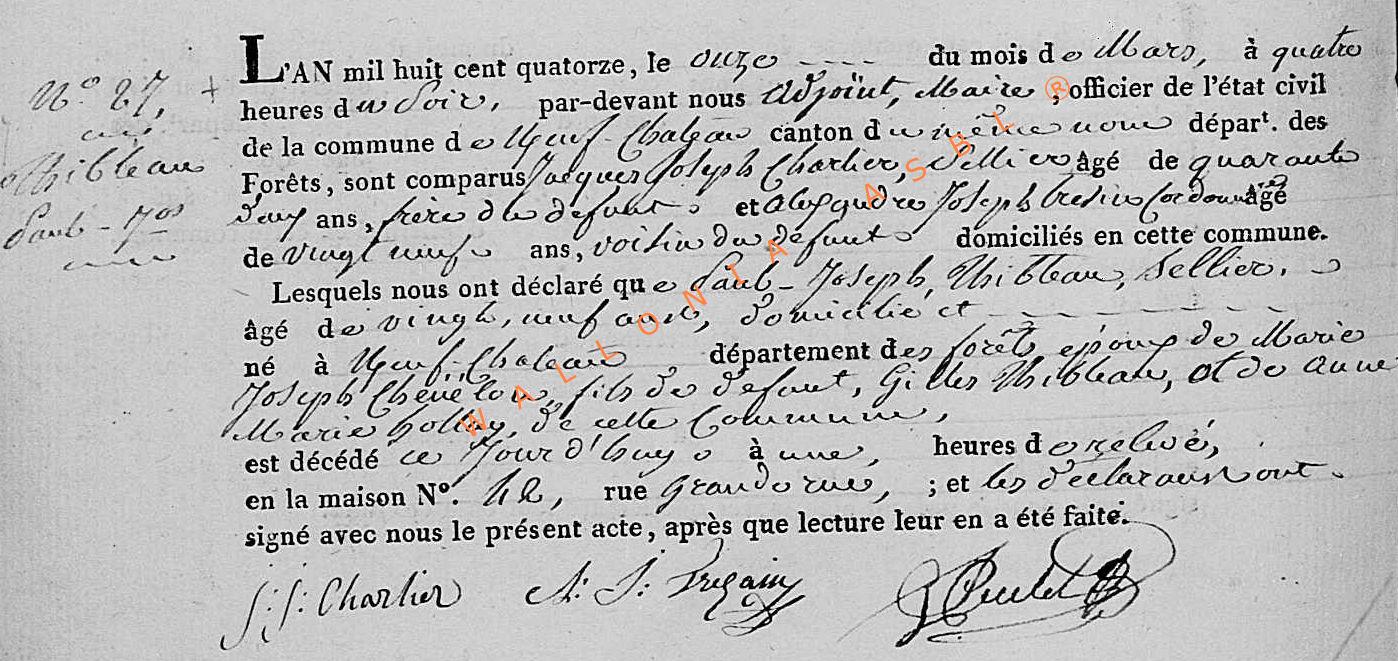 N.° 27.
Thibleau
Paul-Jos
L'AN mil huit cent quatorze, le onze du mois de Mars, à quatre
heures du Soir, par-devant nous adjoint, Maire, officier de l'état civil
de la commune de Neuf-Chateau canton du même nom départ. des
Forêts, sont comparus Jacques Joseph Charlier, Sellier âgé de quarante
deux ans, frère du defunt et alexandre Joseph Cordonnier âgé
de vingt neuf ans, voisin du défunt domiciliés en cette commune.
Lesquels nous ont déclaré que Paul-Joseph, Thibleau, Sellier,
âgé de vingt, neuf ans, domicilié et
né à Neuf-Chateau département des forêts, epoux de Marie
Joseph fils de defunt, Gilles Thibleau, et de anne
Marie de cette Commune,
est décédé ce Jour d'huy à une, heures de relevé,
en la maison N°. 42, rue Grande rue, ; et les déclarans ont
signé avec nous le présent acte, après que lecture leur en a été faite.
J: J: Charlier A: J:
WALLONIA ASBL ®